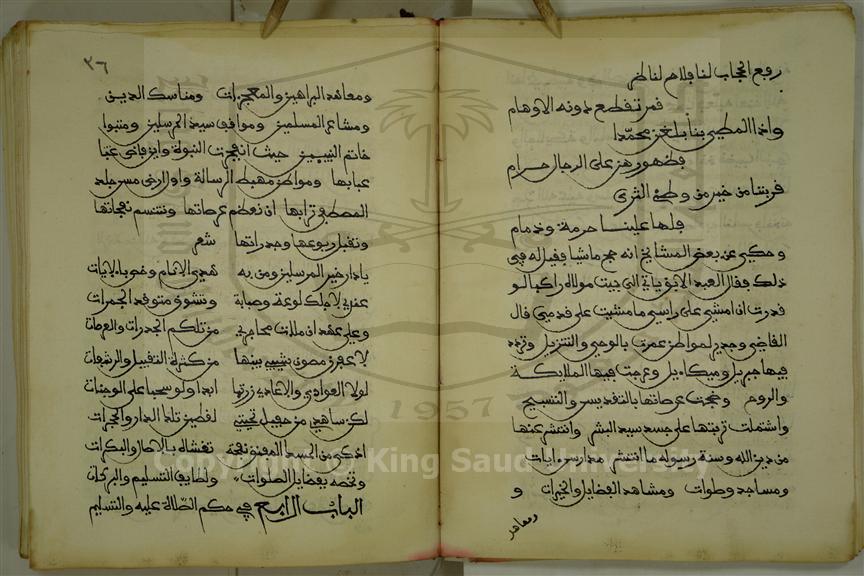 رفع الحجاب لنا فلاح لناظر
قمر تقطع دونه الأوهام
وإذا المطي بنا بلغن محمدا
فظهورهن على الرجال حرام
قربننا من خير من وطئ الثرى
فلها علينا حرمة وذمام
وحكي عن بعض المشايخ انه حج ماشيا فقيل له في
ذلك فقال العبد الابق ياتي الى بيت مولاه راكبا لو
قدرت ان امشي على راسي ما مشيت على قدمي قال
القاضي وجدير لمواطن عمرت بالوحي والتنزيل وتردد
فيها جبريل وميكاءيل وعرجت فيها الملايكة
والروح وضجت عرصاتها بالتقديس والتسبيح
واشتملت تربتها على جسد سيد البشر وانتشر عنها
من دين الله وسنة رسوله ما انتشر مدارس ءايات
ومساجد وصلوات ومشاهد الفضايل والخيرات و
ومعاهد
٣٦
ومعاهد البراهين والمعجزات ومناسك الدين
ومشاعر المسلمين ومواقف سيد المرسلين ومتبوا
خاتم النبيين حيث انفجرت النبوة واين فاض
عبابها ومواطن مهبط الرسالة واول ارض مس جلد
المصطفى ترابها ان تعظم عرصاتها وتتنسم نفحاتها
وتقبل ربوعها وجدراتها شعر
يا دار خير المرسلين ومن به هدي الانام وخص بالايات
عندي لاجلك لوعة وصبابة وتشوق متوقد الجمرات
وعلي عهد ان ملات محاجري من تلكم الجدرات والعرصات
لاعفرن مصون شيبي بينها من كثرة التقبيل والرشفات
لولا العوادي والاعادي زرتها ابدا ولو سحبا على الوجنات
لكن ساهدي من حفيل تحيتي لقطين تلك الدار والحجرات
اذكى من المسك المفتق نفحة تغشاه بالاصال والبكرات
وتخصه بفضايل الصلوات ولطايف التسليم والبركات
الباب الرابع في حكم الصلاة عليه والتسليم
Copyright © King Saud University
1957